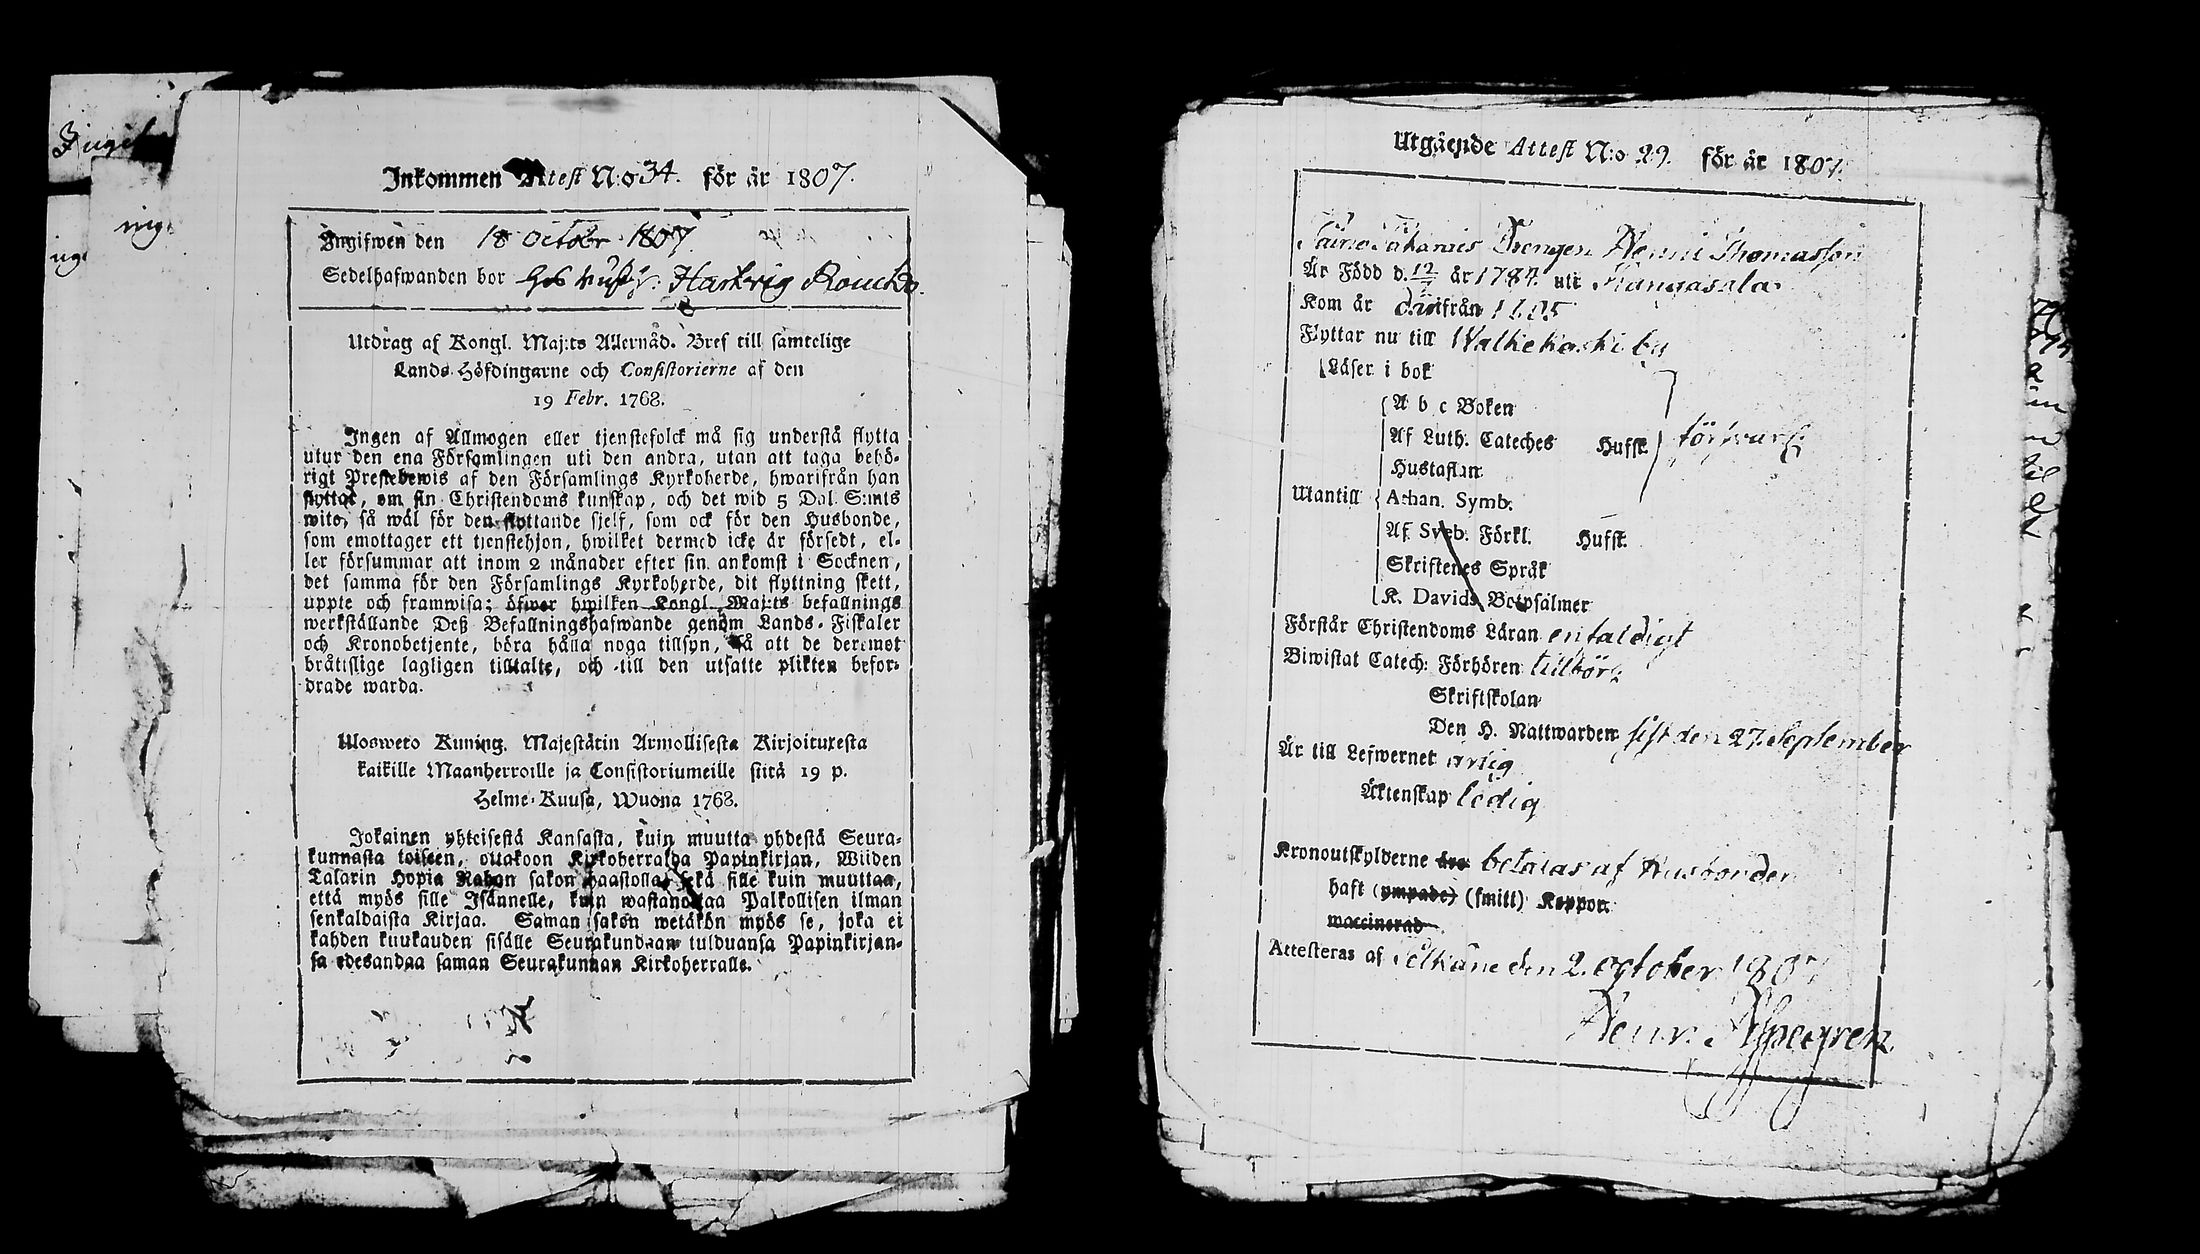 Inkommen Attest N:o 34. för år 1807.
Ingifwen den 18 octobr 1807
Sedelhafwanden bor hos Hartvig
Utdrag af Kongl. Maj:ts Allernåd. Bref till samtelige
Lands-Höfdingarne och Consistorierne af den
19 Febr. 1768.
Ingen af Allmogen eller tjenstefolck må sig understå flytta
utur den ena Församlingen uti den andra, utan att taga behö-
rigt Prestebewis af den Församlings Kyrkoherde, hwarifrån han
flyttat, om sin Christendoms kunskap, och det wid 5 Dal. S:mts
wite, så wäl för den flyttande sjelf, som ock för den Husbonde,
som emottager ett tjenstehjon, hwilket dermed icke är försedt, el-
ler försummar att inom 2 månader efter sin ankomst i Socknen,
det samma för den Församlings Kyrkoherde, dit flyttning skett,
uppte och framwisa; öfwer hwilken Kongl. Maj:ts befallnings
werkställande Deß Befallningshafwande genom Lands-Fiskaler
och Kronobetjente, böra hålla noga tillsyn, så att de deremot
bråttslige lagligen tilltalte, och till den utsatte plikten befor-
drade warda.
Ulosweto Kuning. Majestätin Armollisesta Kirjoituxesta
kaikille Maanherroille ja Consistoriumeille siitä 19 p.
Helme-Kuusa, Wuona 1768.
Jokainen yhteisestä Kansasta, kuin muutta yhdestä Seura-
kunnasta toiseen, ottakoon Kirkoherralda Papinkirjan, Wiiden
Talarin Hopia Rahan sakon haastolla, sekä sille kuin muuttaa,
että myös sille Isännelle, kuin wastanottaa Palkollisen ilman
senkaldaista Kirjaa. Saman sakon wetäkön myös se, joka ei
kahden kuukauden sisälle Seurakundaan tulduansa Papinkirjan-
sa edesandaa saman Seurakunnan Kirkoherralle.
Utgående Attest N:o 29. för år 1807.
Drengen Henric Thomasson
Är Född d. 12 år 1784. uti Kangasala
Kom år därifrån 1805
Flyttar nu till Walkekoski by
Läser i bok
A b c Boken
Af Luth. Cateches Hufst.
Hustaflan
Utantill
Athan. Symb.
Af Sveb. Förkl. Hufst.
Skriftenes Språk
K. Davids Botpsalmer
försvarl:
Förstår Christendoms Läran enfaldigt
Biwistat Catech: Förhören tillbörl:
Skriftskolan
Den H. Nattwarden sist den 27. September
Är till Lefwernet ärlig
Äktenskap ledig
Kronoutskylderne äro betalas af Husbonden
haft (ympade) (smitt) Koppor.
waccinerad
Attesteras af Pelkäne den 2. october 1807
Henr. Aspegren